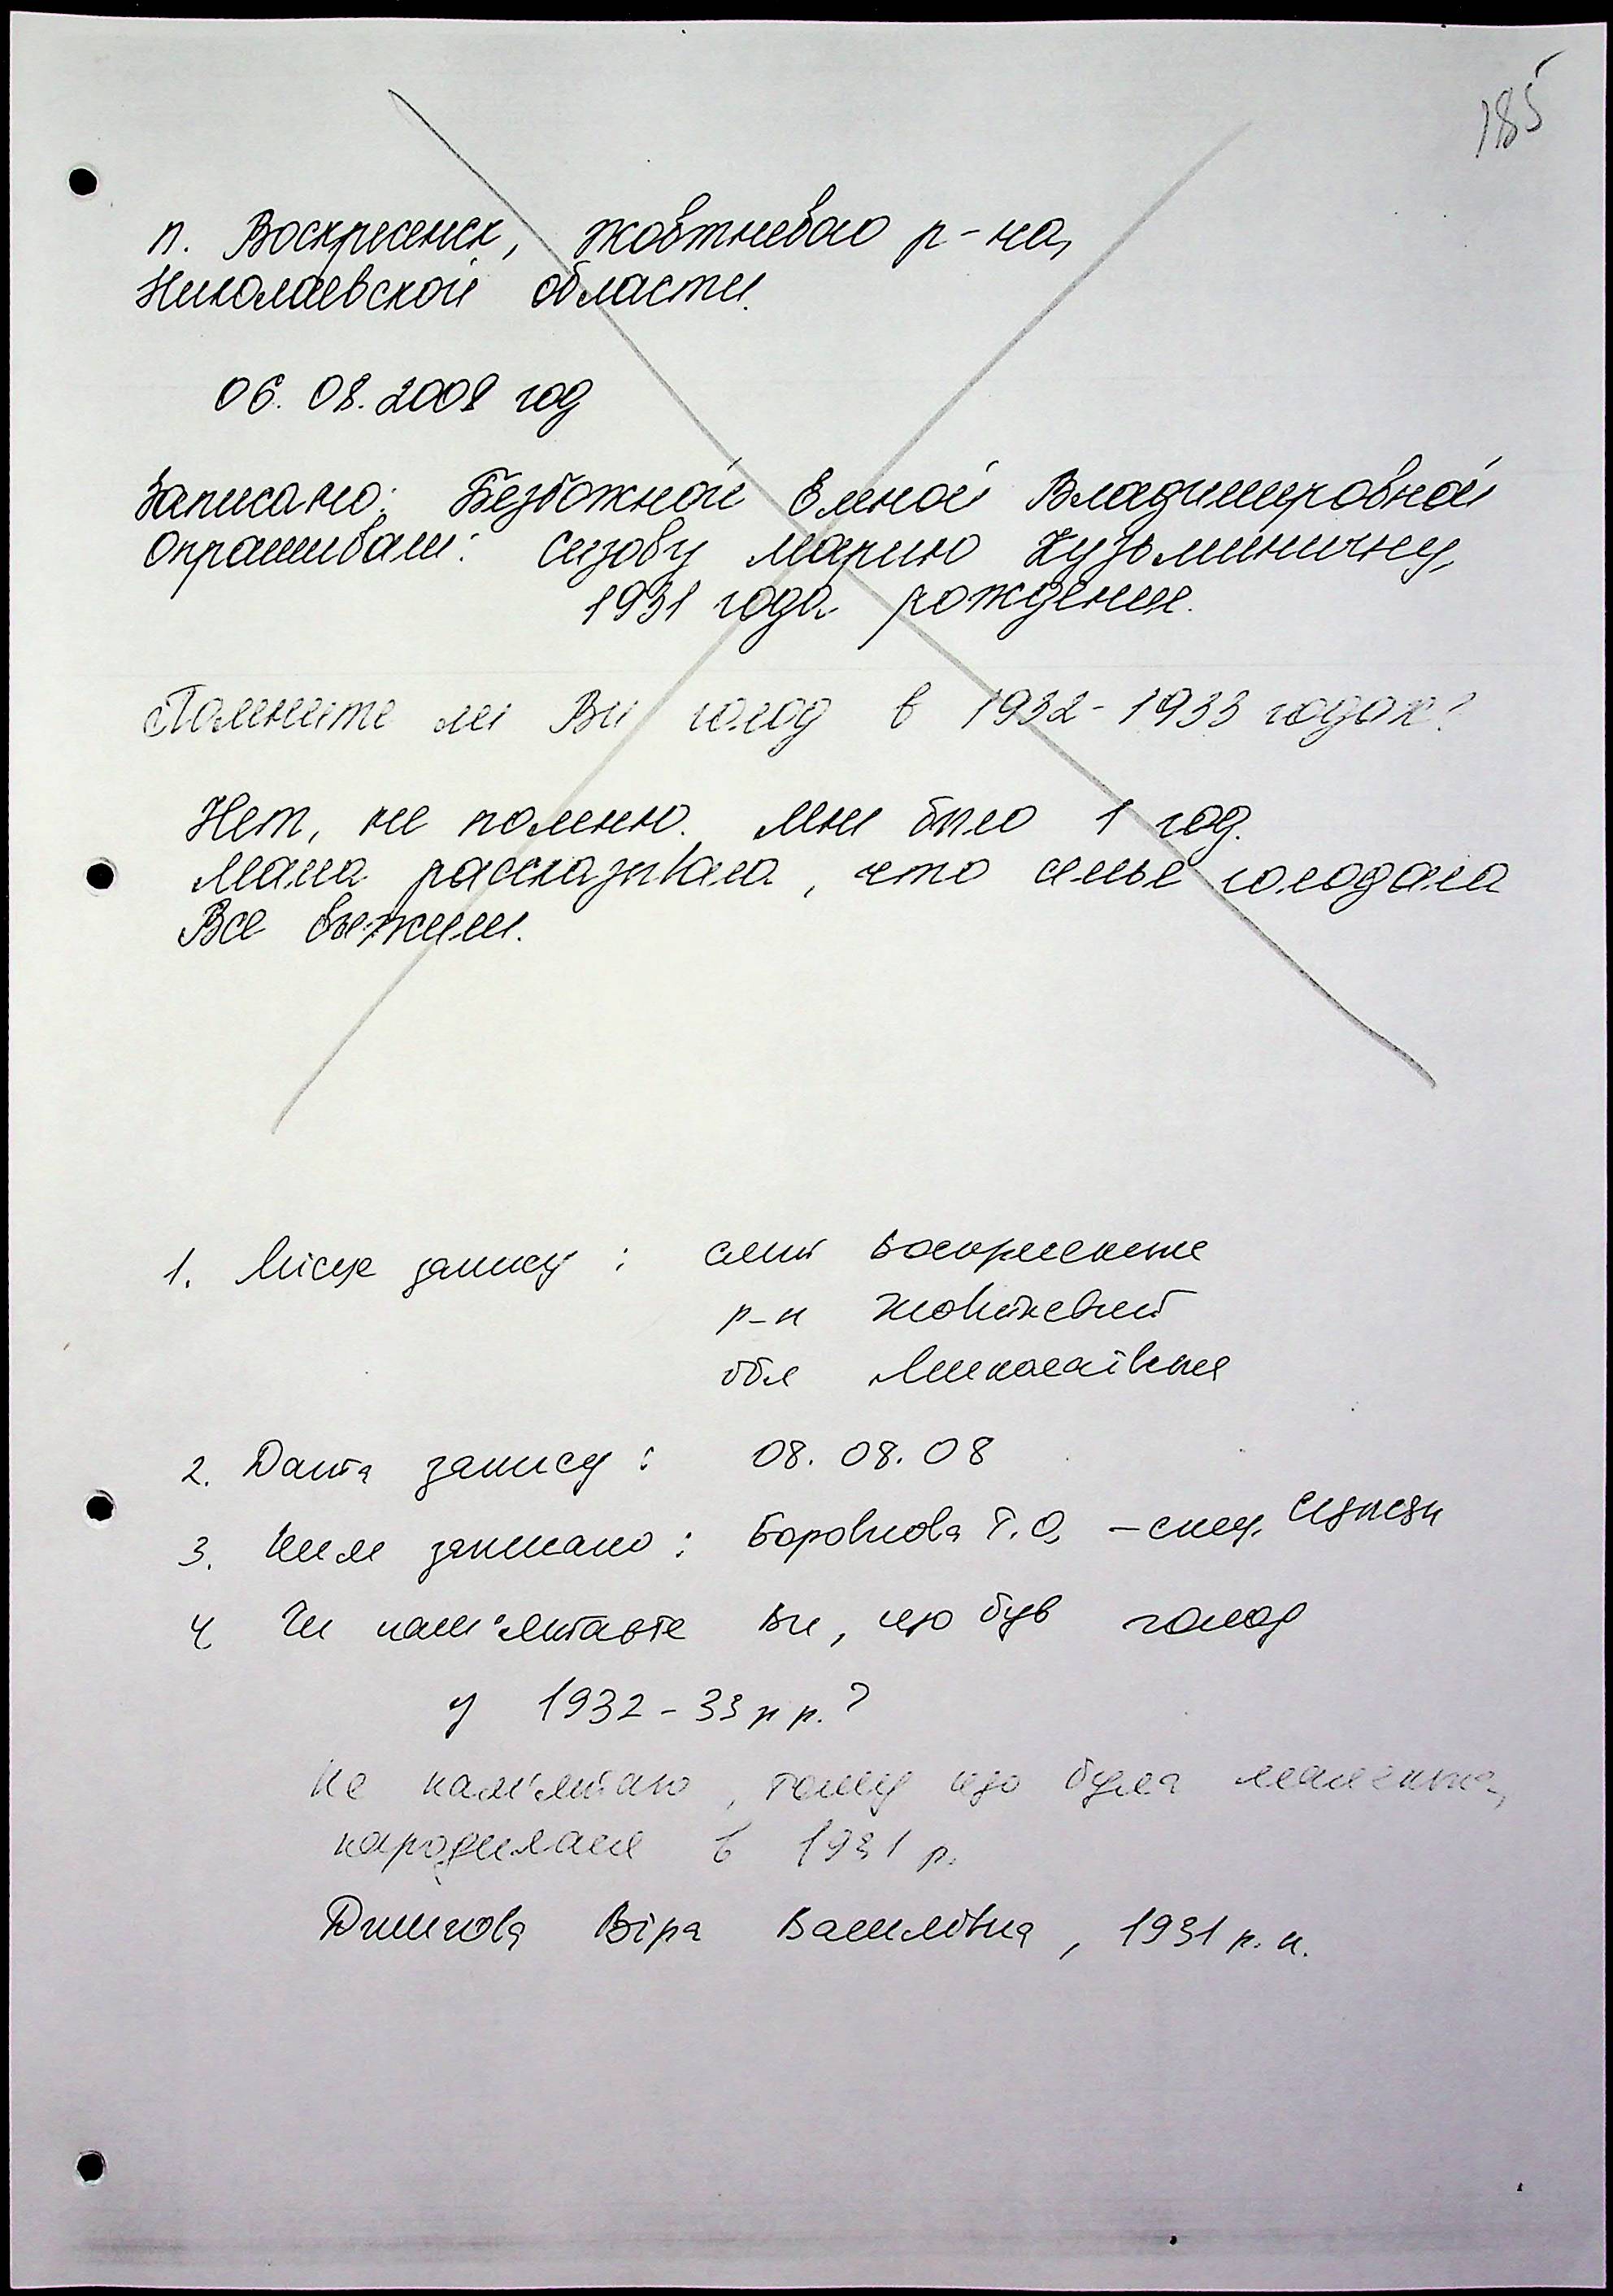 185
п. Воскресенск, Жовтневого р-на,
Николаевской области.
06. 08. 2008 год
Записано: Безбожной Еленой Владимировной
Опрашивали: Сизову Марию Кузьминичну,
1931 года рождения.
Помните ли Ви голод в 1932-1933 годах?
Нет, не помню. Мне било 1 год.
Мама рассказивала, что семья голодала
Все выжили.
1. Місце запису : смт Воскресенське
р-н Жовтневий
обл Миколаївська
2. Дата запису : 08. 08. 08
3. Ким записано : Т. О, – спец.
4 Чи пам'ятаєте Ви, що був голод
у 1932-33 р р. ?
Не пам'ятаю, тому що була маленька,
народилася в 1931 р.
Віра Василівна, 1931 р. н.